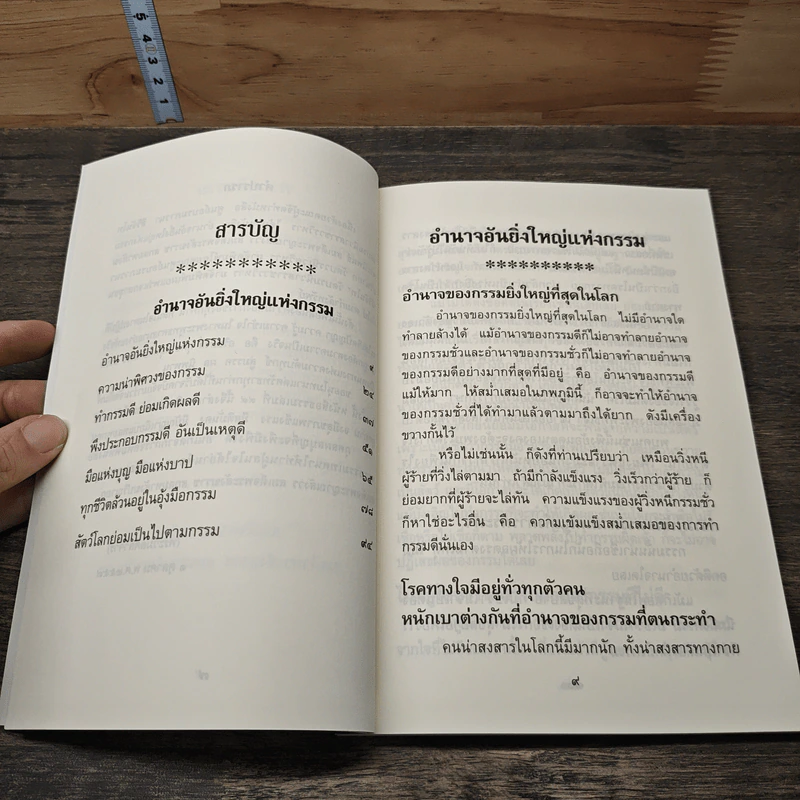 5 4 3 2 1
สารบัญ
***********
อำนาจอันยิ่งใหญ่แห่งกรรม
อำนาจอันยิ่งใหญ่แห่งกรรม ๙
ความน่าพิศวงของกรรม ๒๔
ทำกรรมดี ย่อมเกิดผลดี ๓๗
พึงประกอบกรรมดี อันเป็นเหตุดี ๕๑
มือแห่งบุญ มือแห่งบาป ๖๕
ทุกชีวิตล้วนอยู่ในอุ้งมือกรรม ๗๘
สัตว์โลกย่อมเป็นไปตามกรรม ๙๔
อำนาจอันยิ่งใหญ่แห่งกรรม
**********
อำนาจของกรรมยิ่งใหญ่ที่สุดในโลก
อำนาจของกรรมยิ่งใหญ่ที่สุดในโลก ไม่มีอำนาจใด
ทำลายล้างได้ แม้อำนาจของกรรมดีก็ไม่อาจทำลายอำนาจ
ของกรรมชั่วและอำนาจของกรรมชั่วก็ไม่อาจทำลายอำนาจ
ของกรรมดีอย่างมากที่สุดที่มีอยู่ คือ อำนาจของกรรมดี
แม้ให้มาก ให้สม่ำเสมอในภพภูมินี้ ก็อาจจะทำให้อำนาจ
ของกรรมชั่วที่ได้ทำมาแล้วตามมาถึงได้ยาก ดังมีเครื่อง
ขวางกั้นไว้
หรือไม่เช่นนั้น ก็ดังที่ท่านเปรียบว่า เหมือนวิ่งหนี
ผู้ร้ายที่วิ่งไล่ตามมา ถ้ามีกำลังแข็งแรง วิ่งเร็วกว่าผู้ร้าย ก็
ย่อมยากที่ผู้ร้ายจะไล่ทัน ความแข็งแรงของผู้วิ่งหนีกรรมชั่ว
ก็หาใช่อะไรอื่น คือ ความเข้มแข็งสม่ำเสมอของการทำ
กรรมดีนั่นเอง
โรคทางใจมีอยู่ทั่วทุกตัวคน
หนักเบาต่างกันที่อำนาจของกรรมที่ตนกระทำ
คนน่าสงสารในโลกนี้มีมากนัก ทั้งน่าสงสารทางกาย
๙